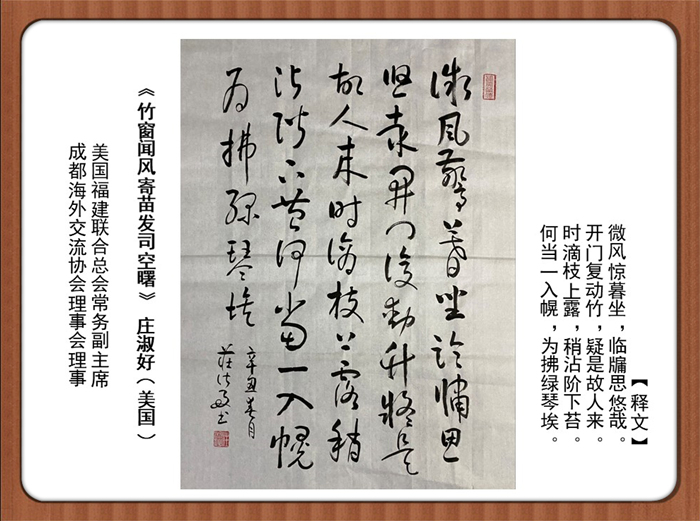 【释文】
微风惊暮坐，临牖思悠哉。
开门复动竹，疑是故人来。
时滴枝上露，稍沾阶下苔。
何当一入幌，为拂绿琴埃。
微风惊暮坐临牖思
悠哉开门复动竹疑是
故人来时滴枝上露稍
沾阶下苔何当一入幌
为拂绿琴埃
辛丑春月
莊淑好书
《竹窗闻风寄苗发司空曙》 庄淑好（美国）
美国福建联合总会常务副主席
成都海外交流协会理事会理事